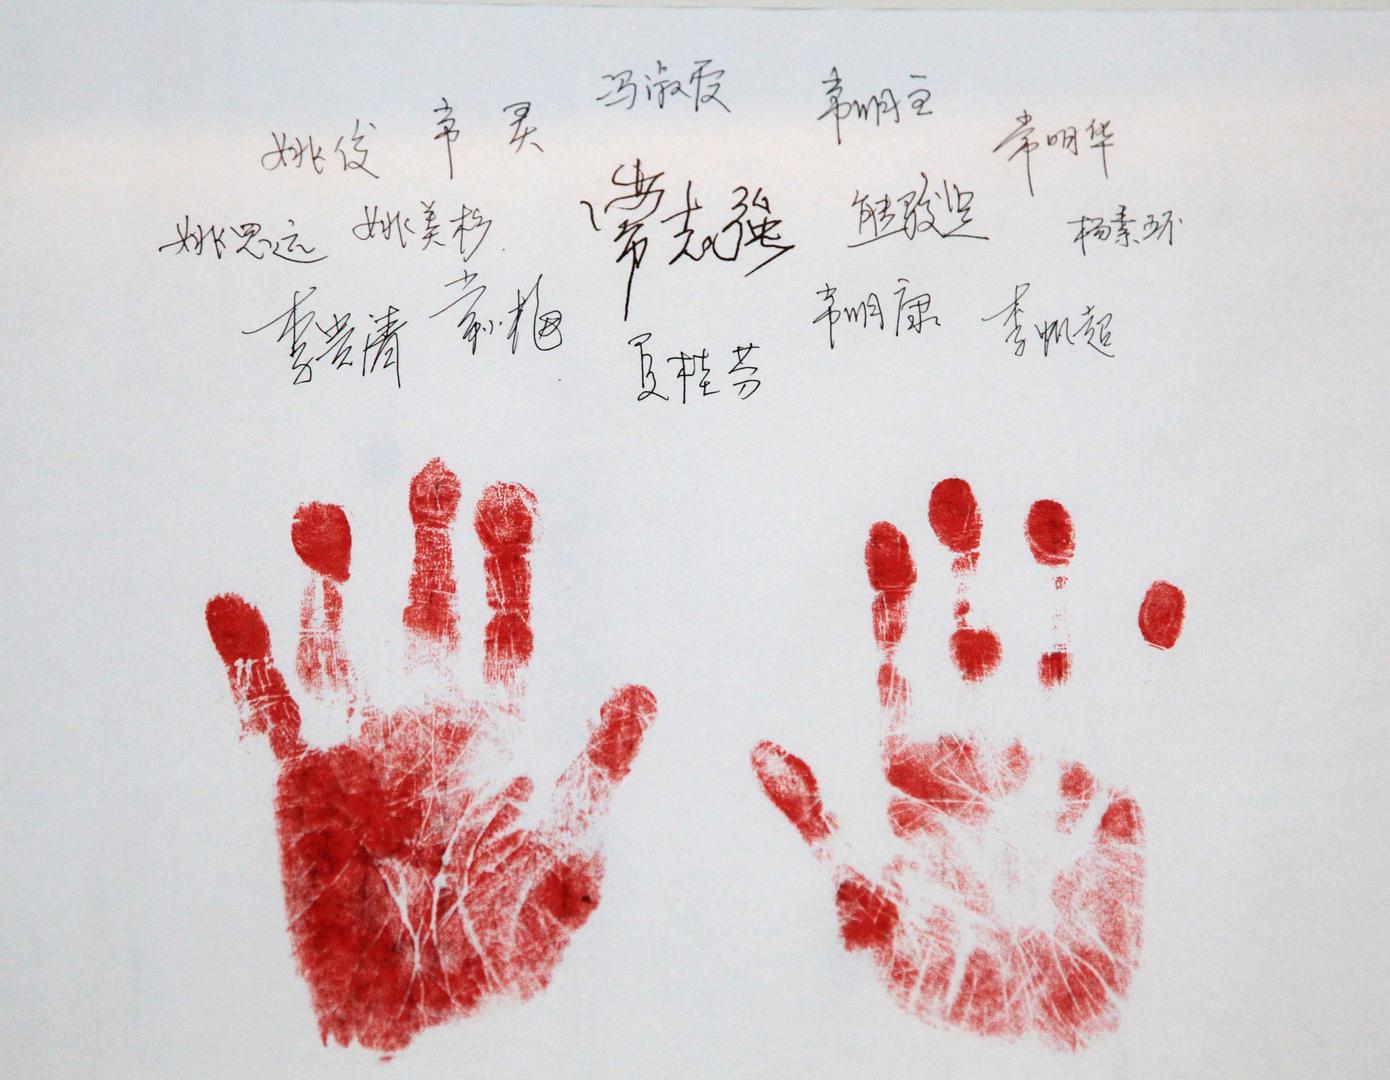 冯淑爱
常明玉
姚俊
常灵
常明华
姚思远
姚美杉
常志强
杨素环
李贵清
常小梅
夏桂芬
常明康
李帆超